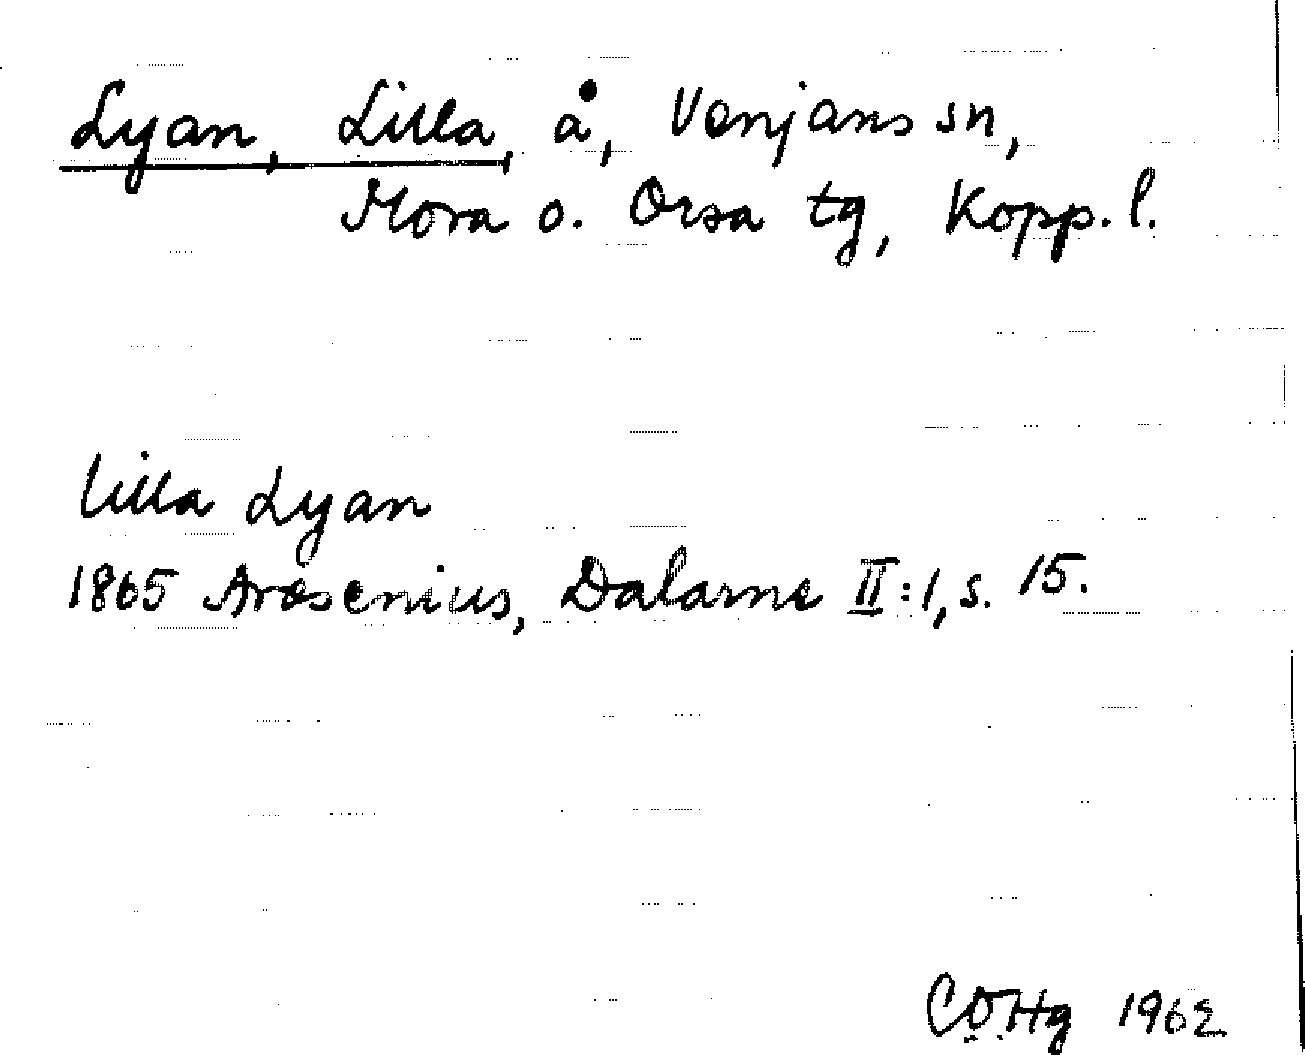 Lyan, Lilla, å, Venjans sn,
Mora o. Orsa tg, Kopp. l.
Lilla Lyan
1865 Arosenius, Dalarne II:1, s. 15.
COHg 1962